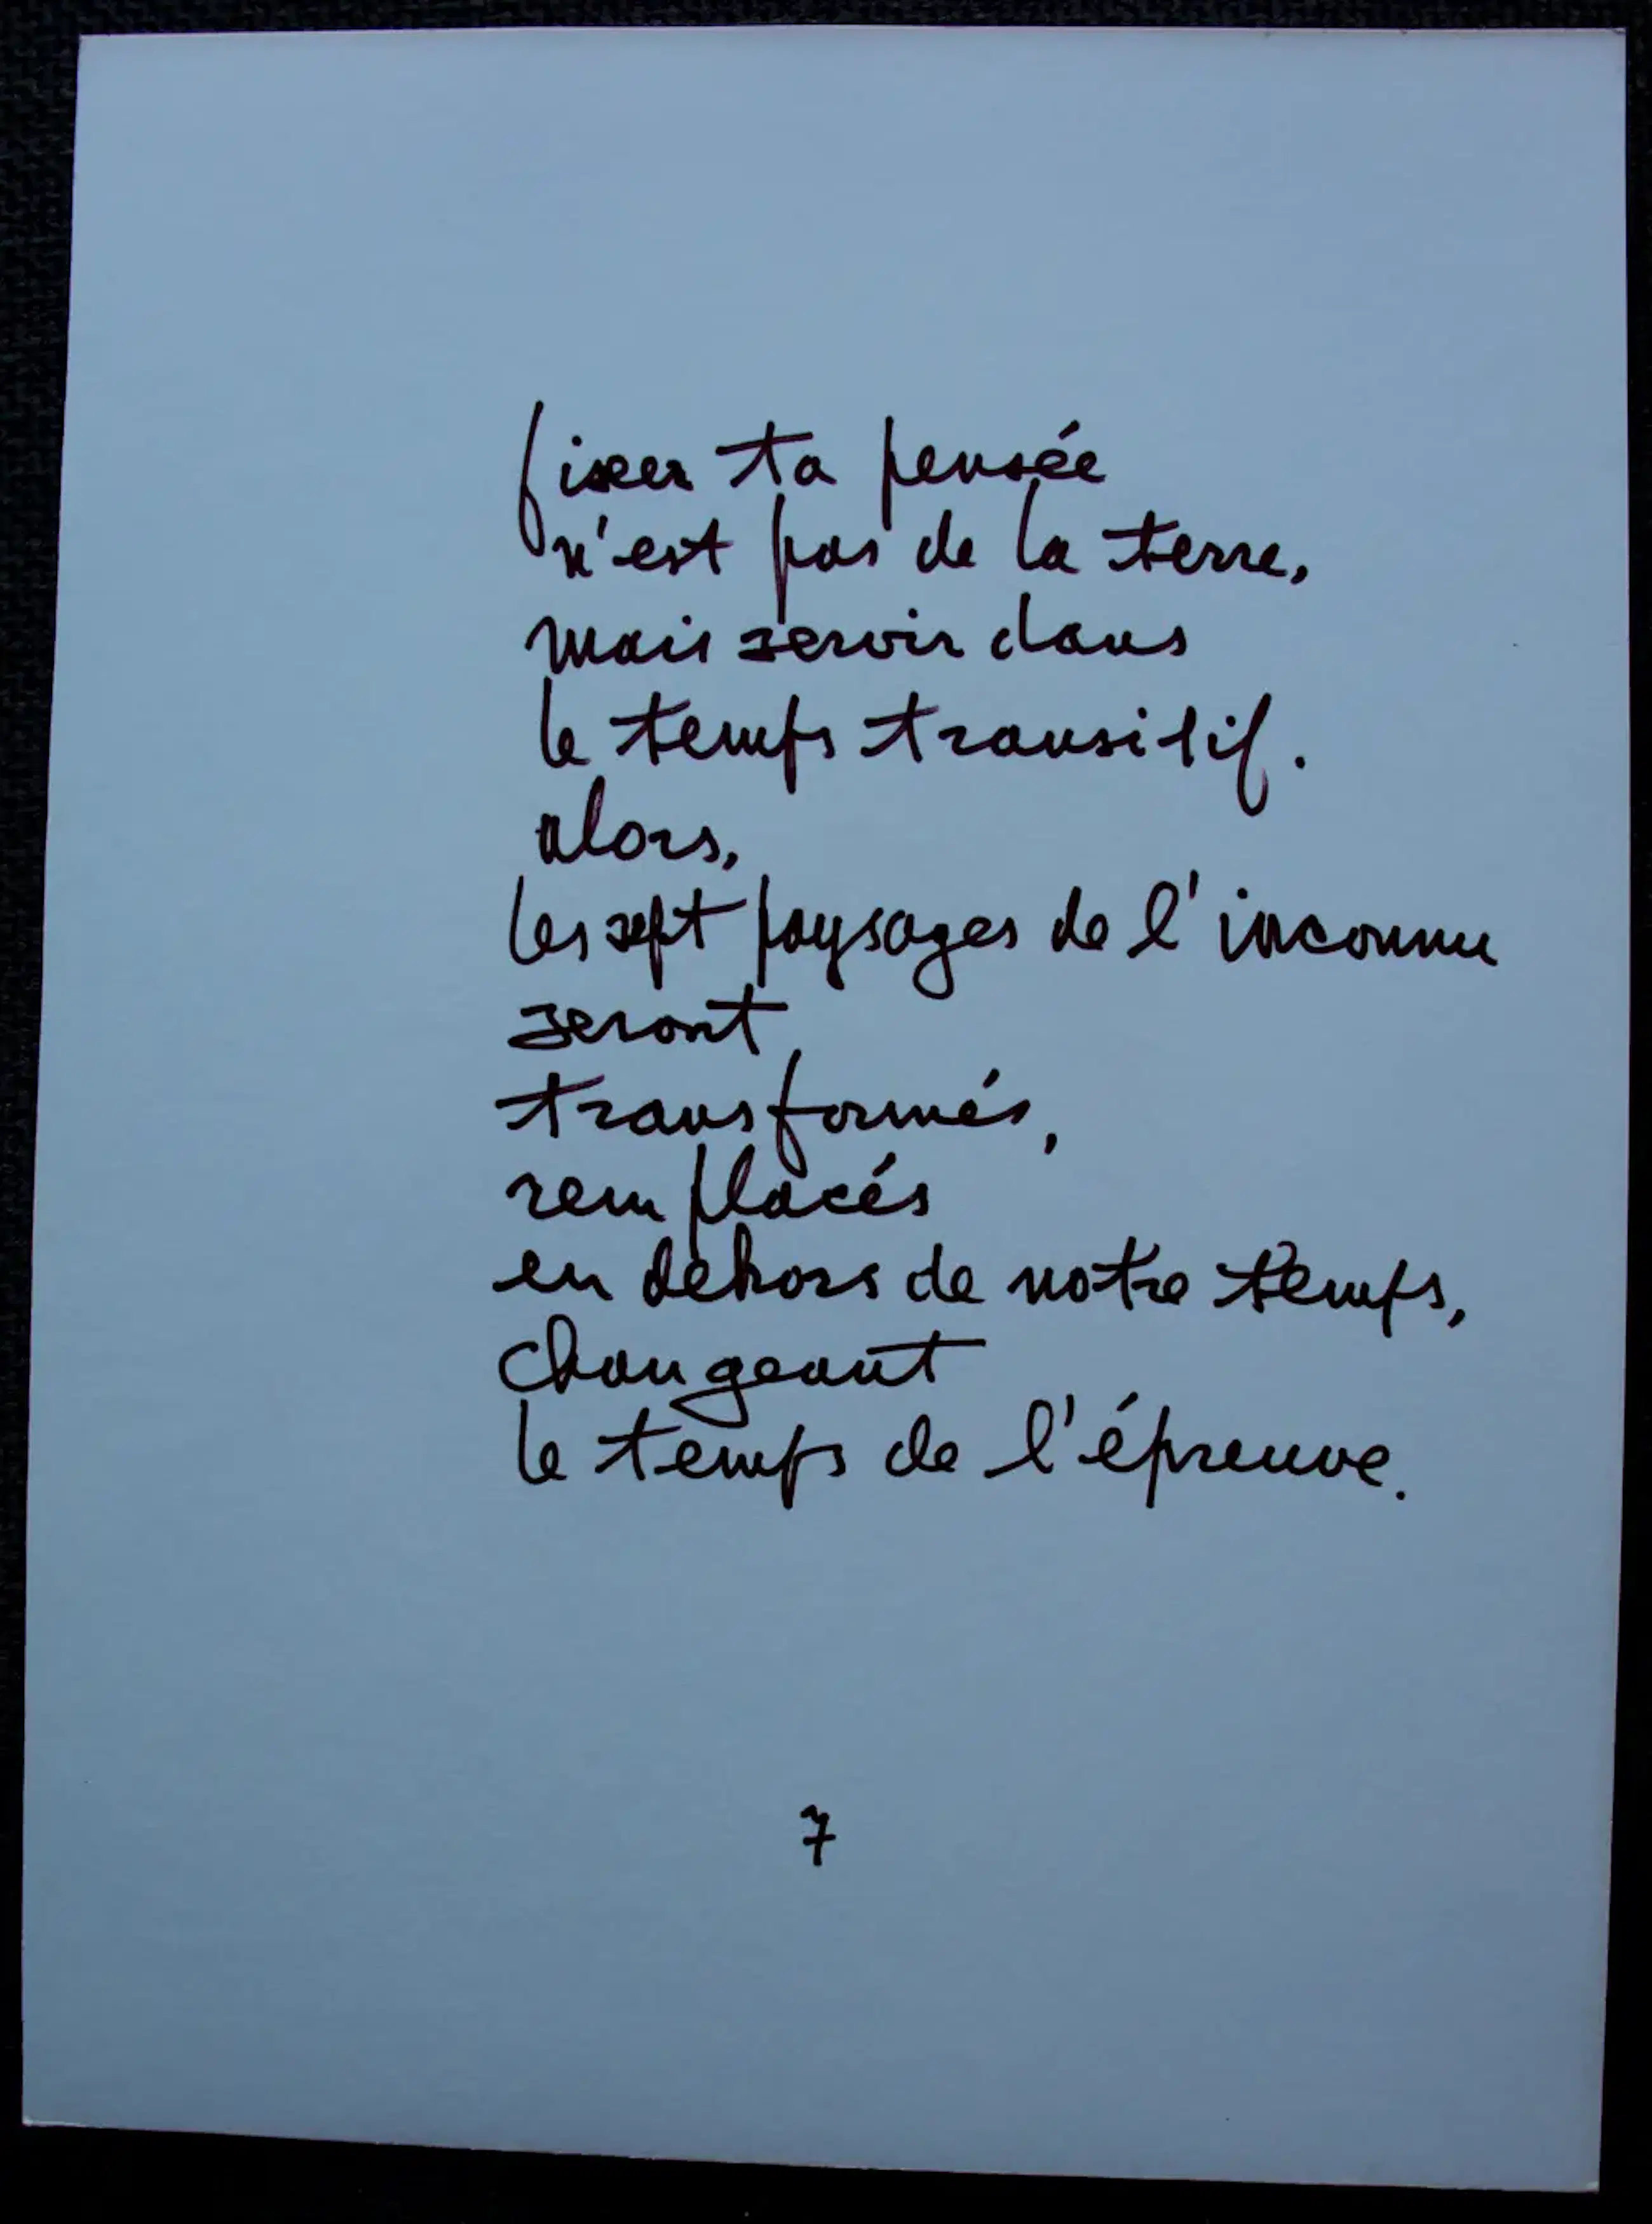 fixer ta pensée
n'est pas de la terre,
mais servir dans
le temps transitif.
alors,
les sept paysages de l'inconnu
seront
transformés,
remplacés
en dehors de notre temps,
changeant
le temps de l'épreuve.
7